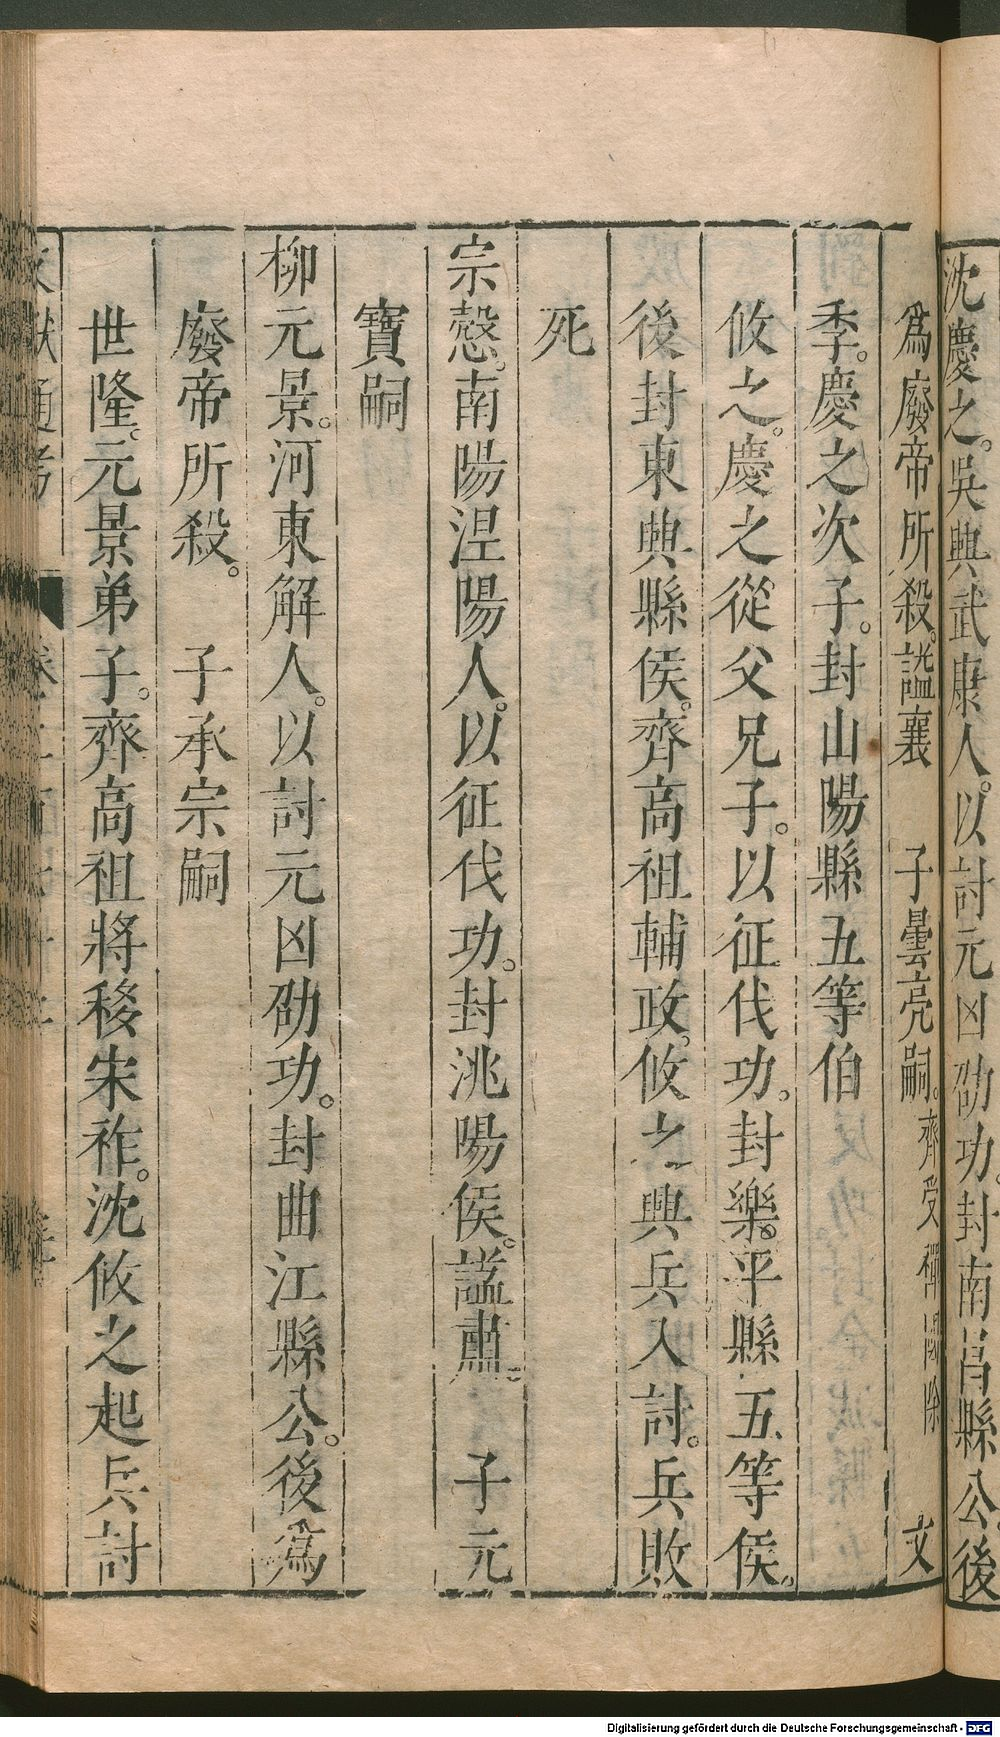 沈慶之。吳興武康人。以討元凶劭功。封南昌縣公。後
爲廢帝所殺。謚襄　子曇亮嗣。齊受禪國除　文
季。慶之次子。封山陽縣五等伯
攸之。慶之從父兄子。以征伐功。封樂。平縣五等侯。
後封東興縣侯。齊高祖輔政。攸之興兵入討。兵敗
死
宗慤。南陽涅陽人。以征伐功。封洮陽侯。謚肅。　子元
寶嗣
柳元景。河東解人。以討元凶劭功。封曲江縣公。後爲
廢帝所殺。　子承宗嗣
世隆。元景弟子。齊高祖將移宋祚。沈攸之起兵討
文獻通考
Digitalisierung gefördert durch die Deutsche Forschungsgemeinschaft - DFG